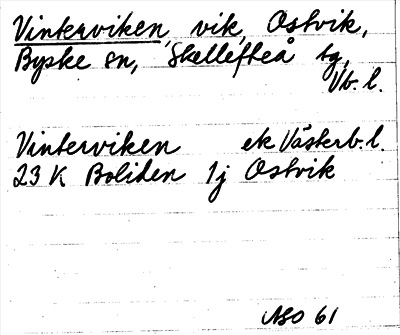 Vinterviken, vik, Ostvik,
Byske sn, Skellefteå tg,
Vb. l.
Vinterviken ek Västerb. l.
23 K Boliden 1j Ostvik
ASO 61